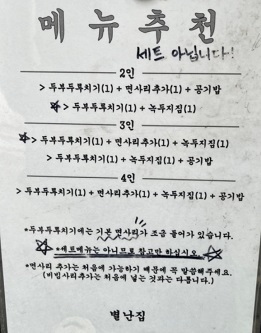 메뉴추천
세트 아닙니다!
2인
> 두부두루치기(1) + 면사리추가(1) + 공기밥
> 두부두루치기(1) + 녹두지짐(1)
3인
> 두부두루치기(1) + 면사리추가(1) + 녹두지짐(1)
> 두부두루치기(1) + 녹두지짐(1) + 공기밥
4인
> 두부두루치기(1) + 면사리추가(1) + 녹두지짐(1) + 공기밥
*두부두루치기에는 기본 면사리가 조금 들어가 있습니다.
*세트메뉴는 아니므로 참고만 하십시오.
*면사리 추가는 처음에 가능하기 때문에 꼭 말씀해주세요.
(비빔사리추가는 처음에 넣는 것과는 다릅니다.)
별난집